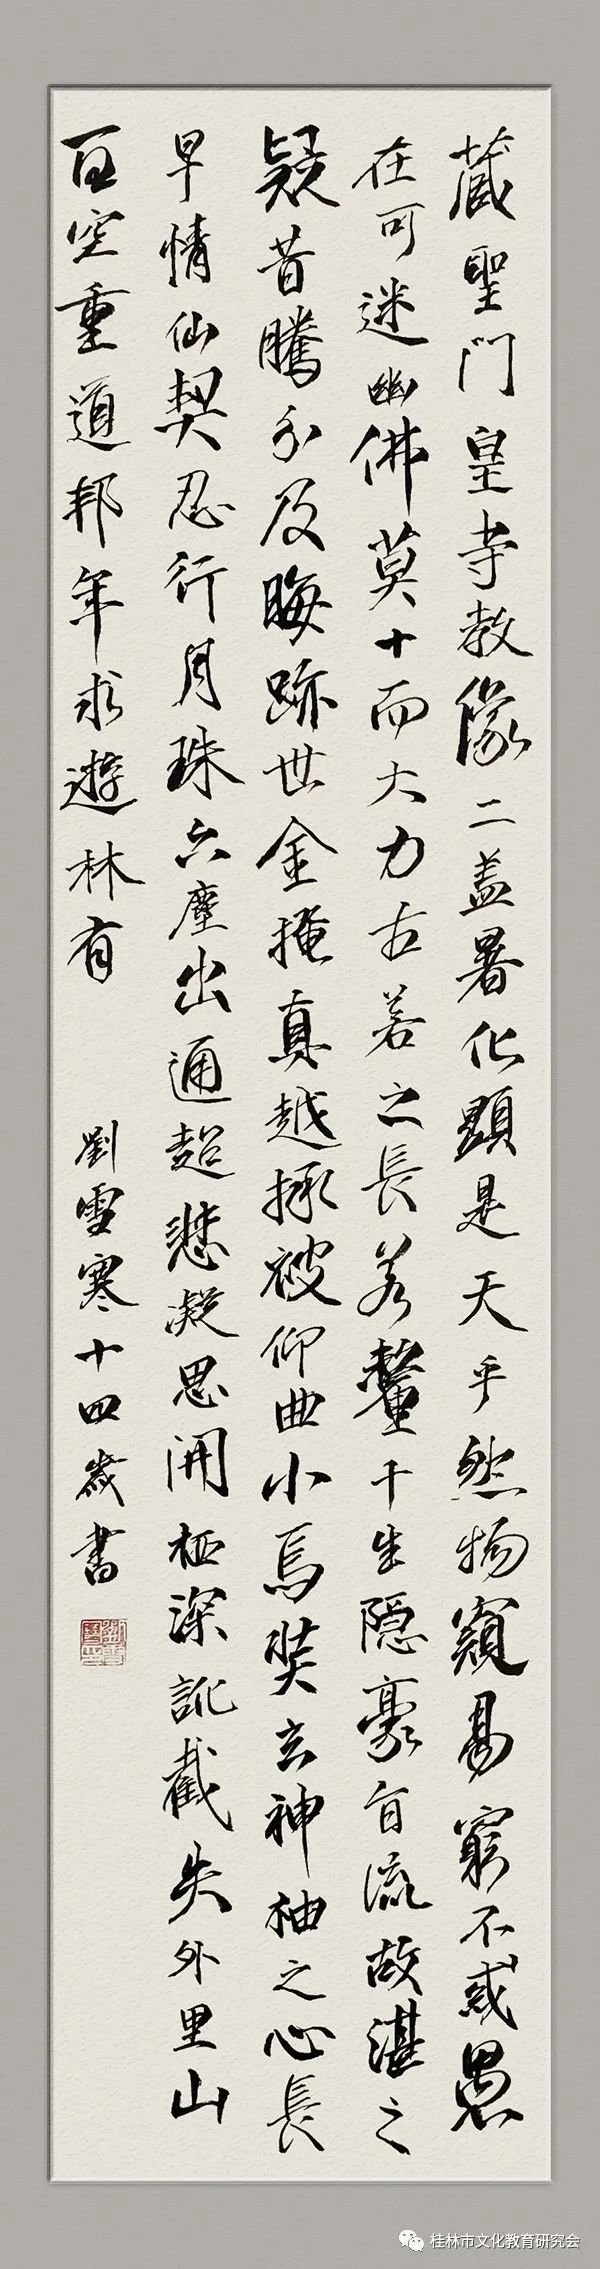 藏聖門皇寺教像二蓋暑化顯是天乎然物窺易窮不惑愚
在可迷幽佛莫十而大力古若之長若釐千生隱豪旨流故湛之
疑昔騰分及晦跡世金掩真越採被仰曲小焉奘玄神神之心長
早情仙契忍行月珠六塵出通超悲凝思開極深訛截失外里山
百空重道邦年求遊林有
劉雪寒十四歲書
桂林市文化教育研究会